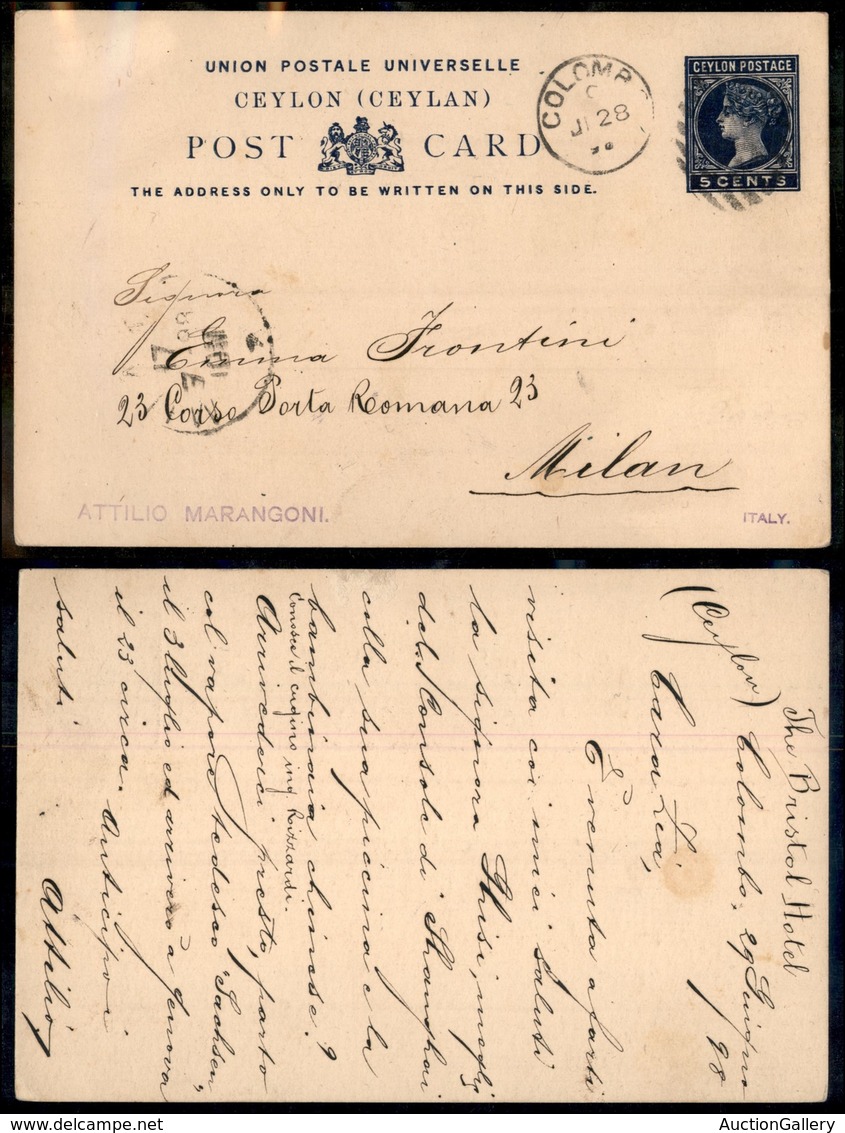 UNION POSTALE UNIVERSELLE
CEYLON (CEYLAN)
POST CARD
THE ADDRESS ONLY TO BE WRITTEN ON THIS SIDE.
COLOMB
C
28
CEYLON POSTAGE
5 CENTS
Signora
Emma Frontini
23 Corso Porta Romana 23
Milan
ATTILIO MARANGONI.
ITALY.
The Bristol Hotel
(Ceylon) Colombo, 29 Giugno 98
Cara Zia,
È venuta a farti
visita coi miei saluti
la signora Ghisi, moglie
del Console di Shanghai
colla sua piccina e la
bambinaia chinese?
Conosce il cugino ing Rizzardi.
Arrivederci presto, parto
col vapore tedesco "Sachsen"
il 3 luglio ed arriverò a Genova
il 23 circa. Anticipo i
saluti
Attilio
AuctionGallery